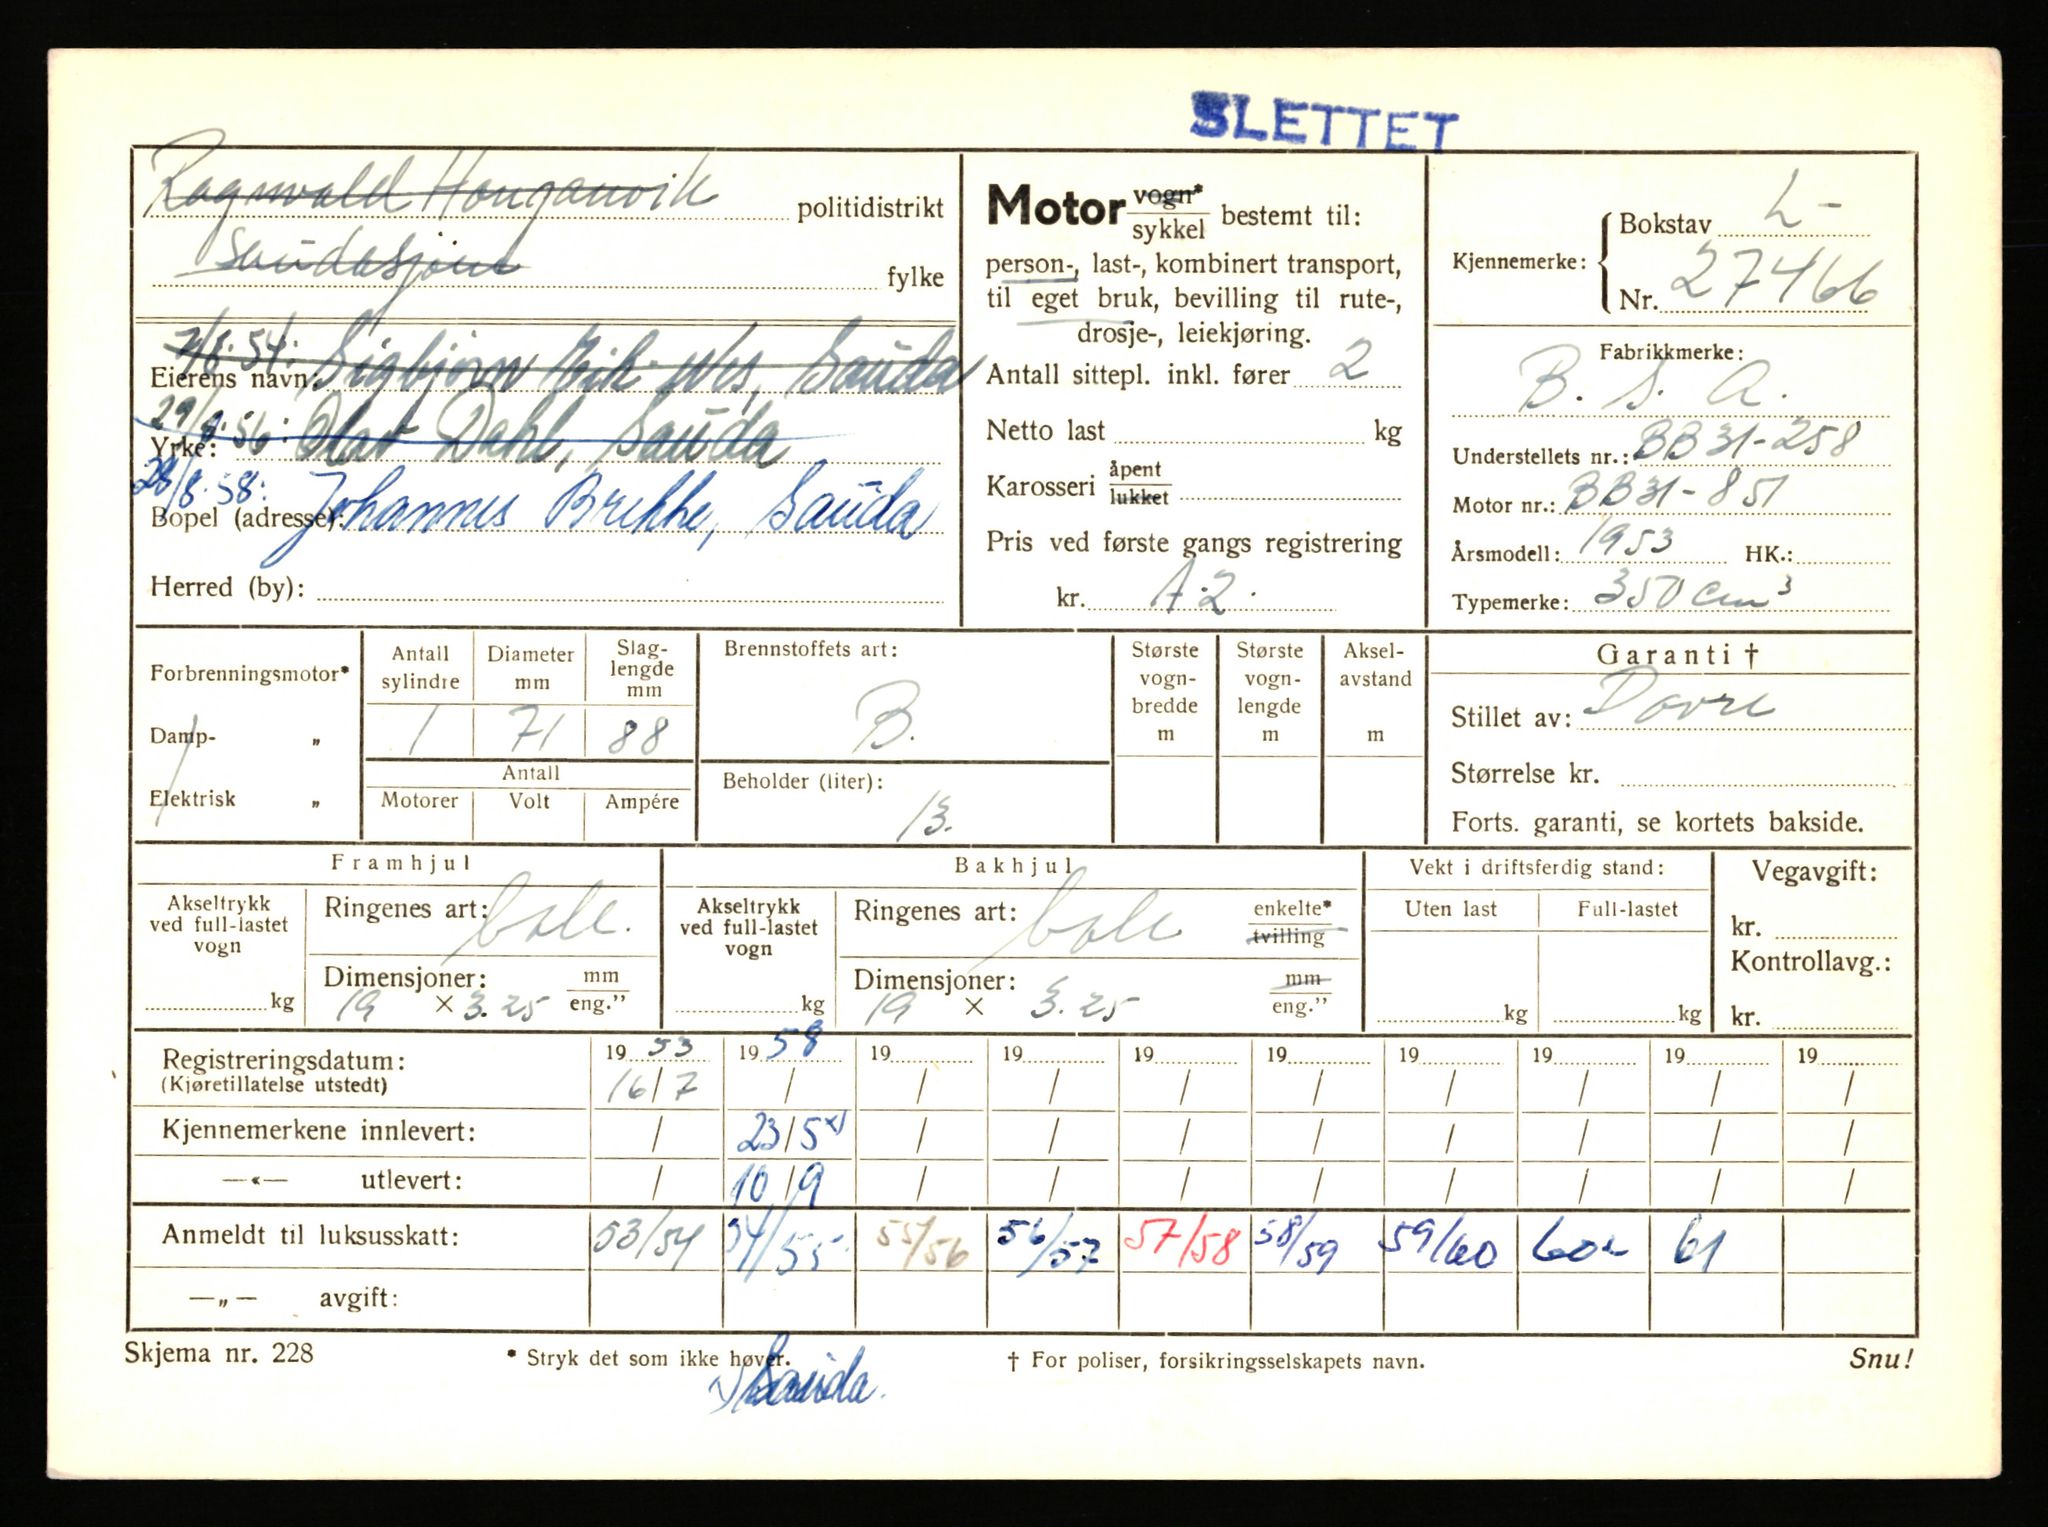 SLETTET
Ragnvald Honganvik politidistrikt
Saudasjøen fylke
Motor vogn*/sykkel bestemt til:
person-, last-, kombinert transport,
til eget bruk, bevilling til rute-,
drosje-, leiekjøring.
Antall sittepl. inkl. fører 2
Netto last kg
Karosseri åpent/lukket
Pris ved første gangs registrering
kr. A.2.
Kjennemerke: Bokstav L-
Nr. 27466
Fabrikkmerke:
B. S. A.
Understellets nr.: BB31-258
Motor nr.: BB31-851
Årsmodell: 1953 HK.:
Typemerke: 350 cm³
54: Sigbjørn Sauda
Eierens navn:
29/ 56: Olav Dahl, Sauda
Yrke:
28/8.58: Johannes Brekke, Sauda
Bopel (adresse):
Herred (by):
Forbrenningsmotor*
Damp- „
Elektrisk „
Antall sylindre Diameter mm Slaglengde mm
1 71 88
Antall
Motorer Volt Ampére
Brennstoffets art:
B.
Beholder (liter):
13.
Største vognbredde m
Største vognlengde m
Akselavstand m
Garanti †
Stillet av: Dovre
Størrelse kr.
Forts. garanti, se kortets bakside.
Framhjul
Akseltrykk ved full-lastet vogn kg
Ringenes art:
Dimensjoner: mm/eng.”
19 × 3.25
Bakhjul
Akseltrykk ved full-lastet vogn kg
Ringenes art: enkelte*/tvilling
Dimensjoner: mm/eng.”
19 × 3.25
Vekt i driftsferdig stand:
Uten last Full-lastet
kg kg
Vegavgift:
kr.
Kontrollavg.:
kr.
Registreringsdatum: 1953 1958 19 19 19 19 19 19 19 19
(Kjøretillatelse utstedt) 16/7 / / / / / / / / /
Kjennemerkene innlevert: / 23/5 x) / / / / / / / /
—«— utlevert: / 10/9 / / / / / / / /
Anmeldt til luksusskatt: 53/54 54/55 55/56 56/57 57/58 58/59 59/60 60 61
—„— avgift:
Skjema nr. 228 * Stryk det som ikke høver. † For poliser, forsikringsselskapets navn. Snu!
x) Sauda.